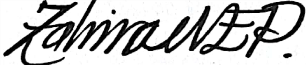 Zahira N.E.P.